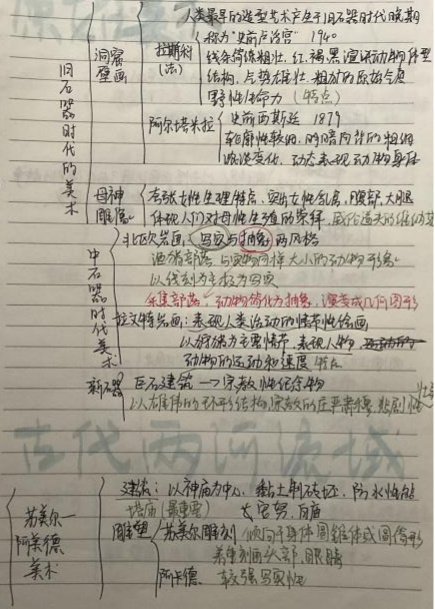 人类最早的造型艺术产生于旧石器时代晚期
旧石器时代的美术
洞窟壁画
拉斯科(法)
称为"史前卢浮宫" 1940
线条简练粗壮,红、褐、黑渲染动物体型
结构,气势雄壮,粗犷的原始气息
野性生命力(特点)
阿尔塔米拉
史前西斯廷 1879
轮廓性较细,明暗向背的粗细
浓淡变化,动态表现动物身体
母神雕像
夸张女性生理特点,突出女性乳房,腹部,大腿
体现人们对母性生殖的崇拜,
中石器时代美术
北欧岩画:写实与抽象两风格
与实物同样大小的动物形象
以线刻为主极为写实
动物简化为抽象,演变成几何图形
拉文特岩画:表现人类活动的情节性绘画
以狩猎为主要情节,表现人物
动物的运动和速度 特征
新石器
巨石建筑 → 宗教性纪念物
以雄伟的环形结构,宗教的庄严肃穆,悲剧性
古代两河流域
苏美尔—阿卡德美术
建筑:以神庙为中心,黏土制砖坯,防水性能
塔庙(最重要) 白庙
雕塑
苏美尔雕刻 倾向于身体圆锥体或圆筒形
着重刻画头部,眼睛
阿卡德 较强写实性